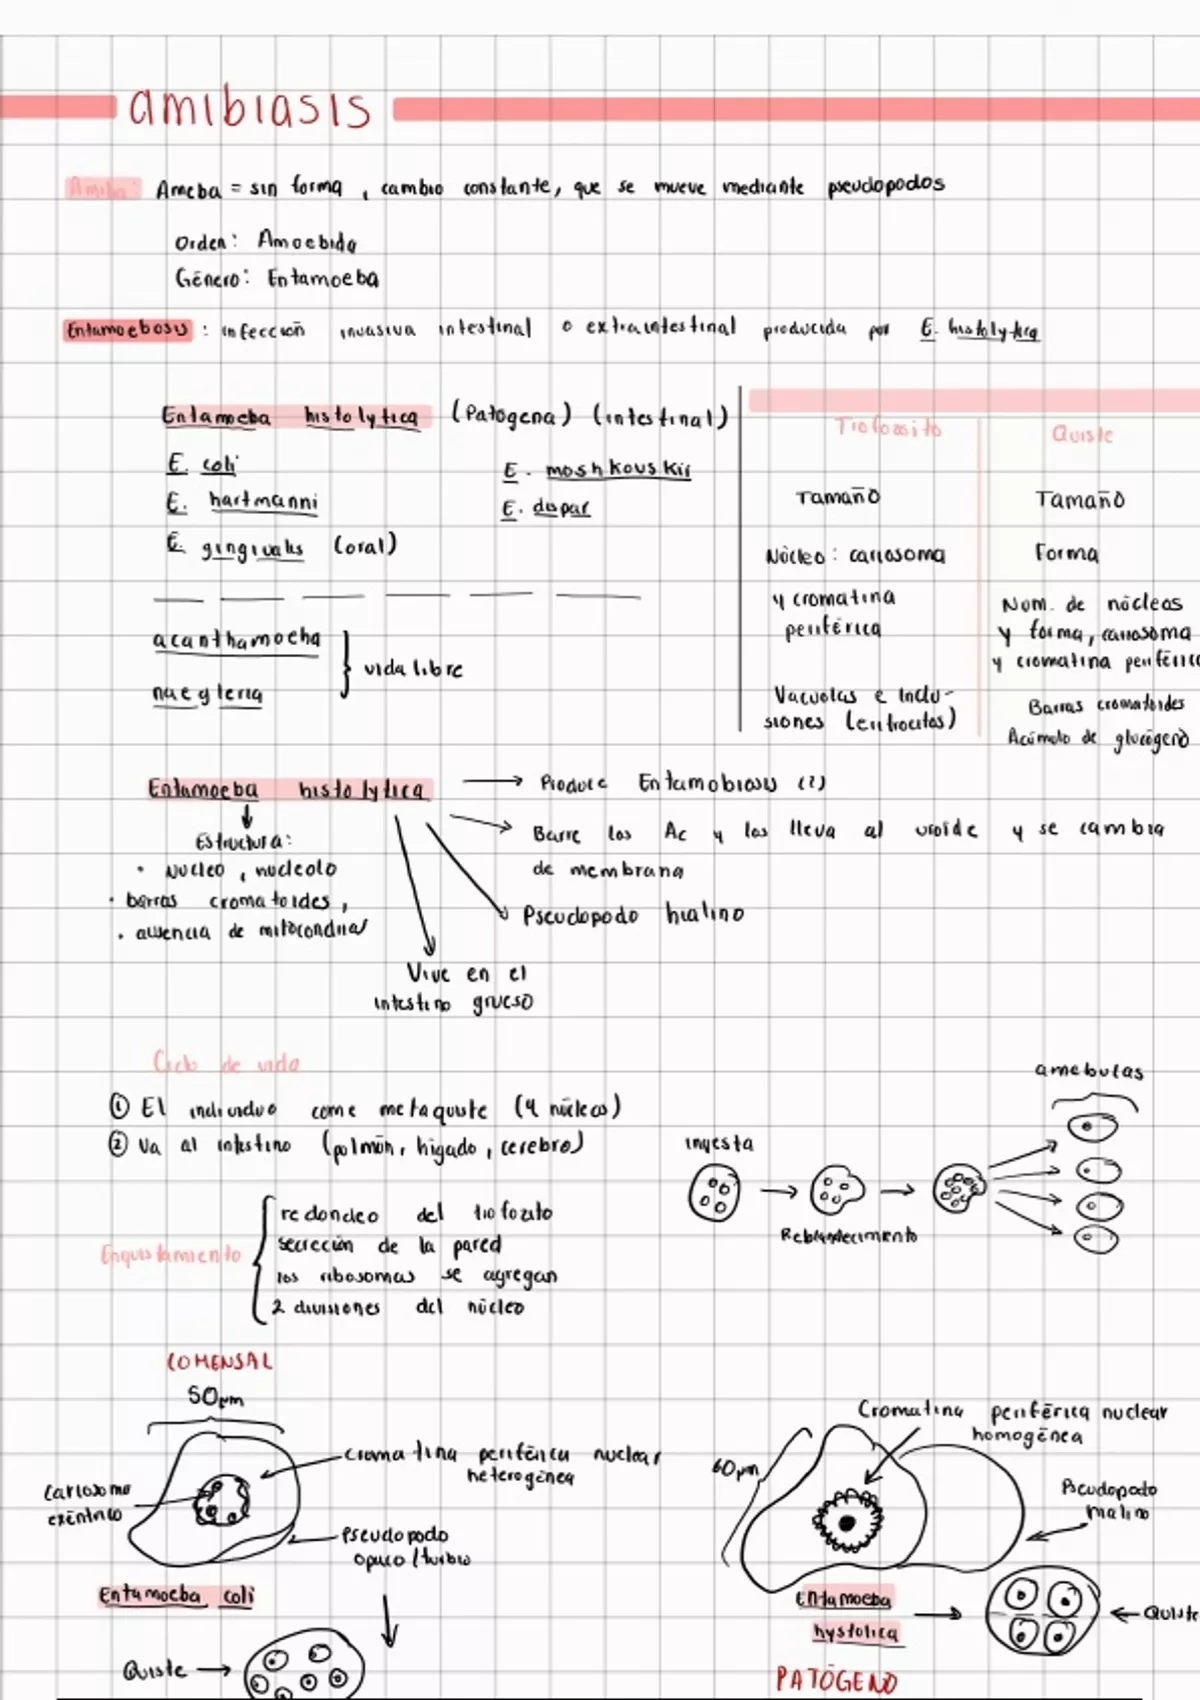 amibiasis
Amiba: Ameba = sin forma, cambio constante, que se mueve mediante pseudopodos
Orden: Amoebida
Género: Entamoeba
Entamoebosis: infección invasiva intestinal o extraintestinal producida por E. histolytica
Entamoeba histolytica (Patogena) (intestinal)
E. coli
E. moshkouskii
E. hartmanni
E. dispar
E. gingivalis (oral)
acanthamoeba
naegleria
vida libre
Trofozoito
Quiste
Tamaño
Tamaño
Núcleo: cariosoma
Forma
y cromatina
periférica
Num. de núcleos
y forma, cariosoma
y cromatina periférica
Vacuolas e inclu-
siones (eritrocitos)
Barras cromatoides
Acúmulo de glucógeno
Entamoeba histolytica
Produce Entamobiosis (?)
Barre los Ac y los lleva al uroide y se cambia
de membrana
Pseudopodo hialino
Vive en el
intestino grueso
Estructura:
• Nucleo, nucleolo
• barras cromatoides,
• ausencia de mitocondrias
Ciclo de vida
① El individuo come metaquiste (4 núcleos)
② Va al intestino (pulmón, hígado, cerebro)
Enquistamiento
redondeo del trofozoito
secreción de la pared
los ribosomas se agregan
2 divisiones del núcleo
amebulas
ingesta
Reblandecimiento
COMENSAL
50µm
cromatina periférica nuclear
heterogénea
cariosoma
excéntrico
Pseudopodo
opaco/turbio
Entamoeba coli
Quiste
Cromatina periférica nuclear
homogénea
60µm
Pseudopodo
hialino
Entamoeba
hystolica
Quiste
PATÓGENO